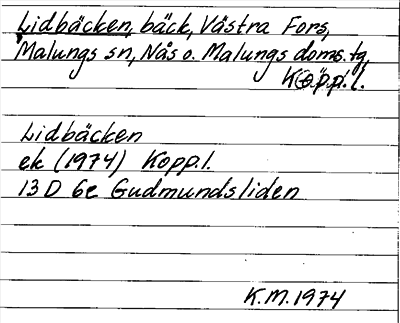 Lidbäcken, bäck, Västra Fors,
Malungs sn, Nås o. Malungs doms. tg,
Kopp. l.
Lidbäcken
ek (1974) Kopp. l.
13 D 6e Gudmundsliden
K.M. 1974